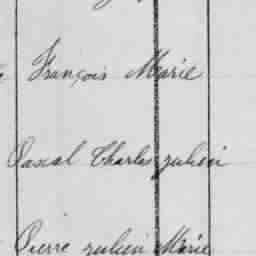 François Marie
Pascal Charles Julien
Pierre Julien Marie